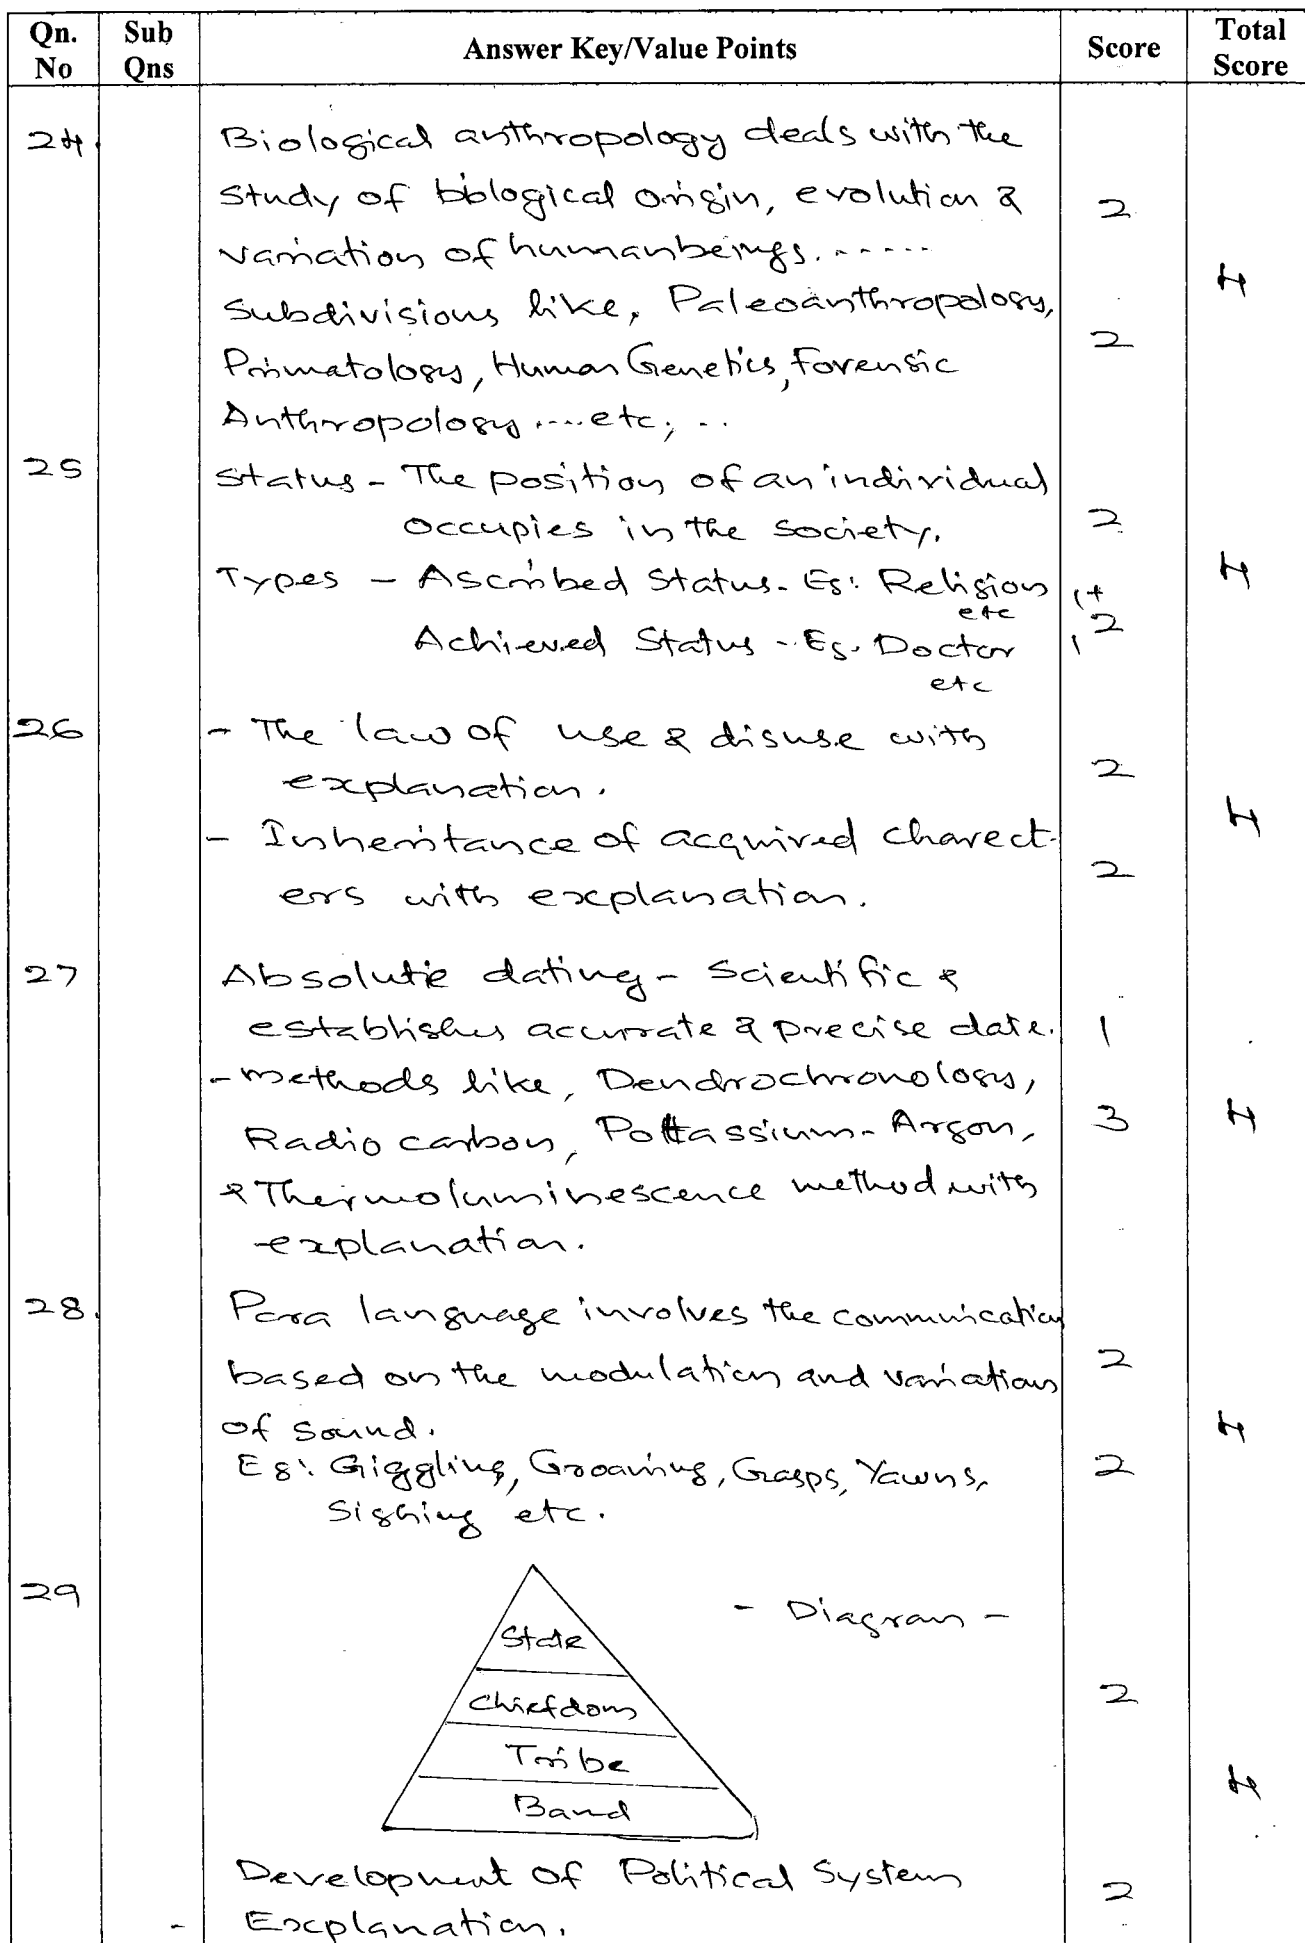 Qn. No Sub Qns Answer Key/Value Points Score Total Score
24. Biological anthropology deals with the
study of biological origin, evolution & 2
variation of humanbeings. ----- 4
Subdivisions like, Paleoanthropology,
Primatology, Human Genetics, Forensic 2
Anthropology .... etc; ..
25 Status - The position of an individual
occupies in the society. 2
Types - Ascribed Status - Eg: Religion etc 1+ 4
Achieved Status - Eg. Doctor etc 1 2
26 - The law of use & disuse with
explanation. 2
- Inheritance of acquired charect- 4
ers with explanation. 2
27 Absolute dating - Scientific &
establishes accurate & precise date. 1
- methods like, Dendrochronology,
Radio carbon, Pottassium - Argon, 3 4
& Thermoluminescence method with
explanation.
28. Para language involves the communication
based on the modulation and variations 2
of sound. 4
Eg: Giggling, Groaning, Grasps, Yawns, 2
Sighing etc.
29 - Diagram -
State
Chiefdom 2
Tribe
Band 4
Development of Political System 2
Explanation.